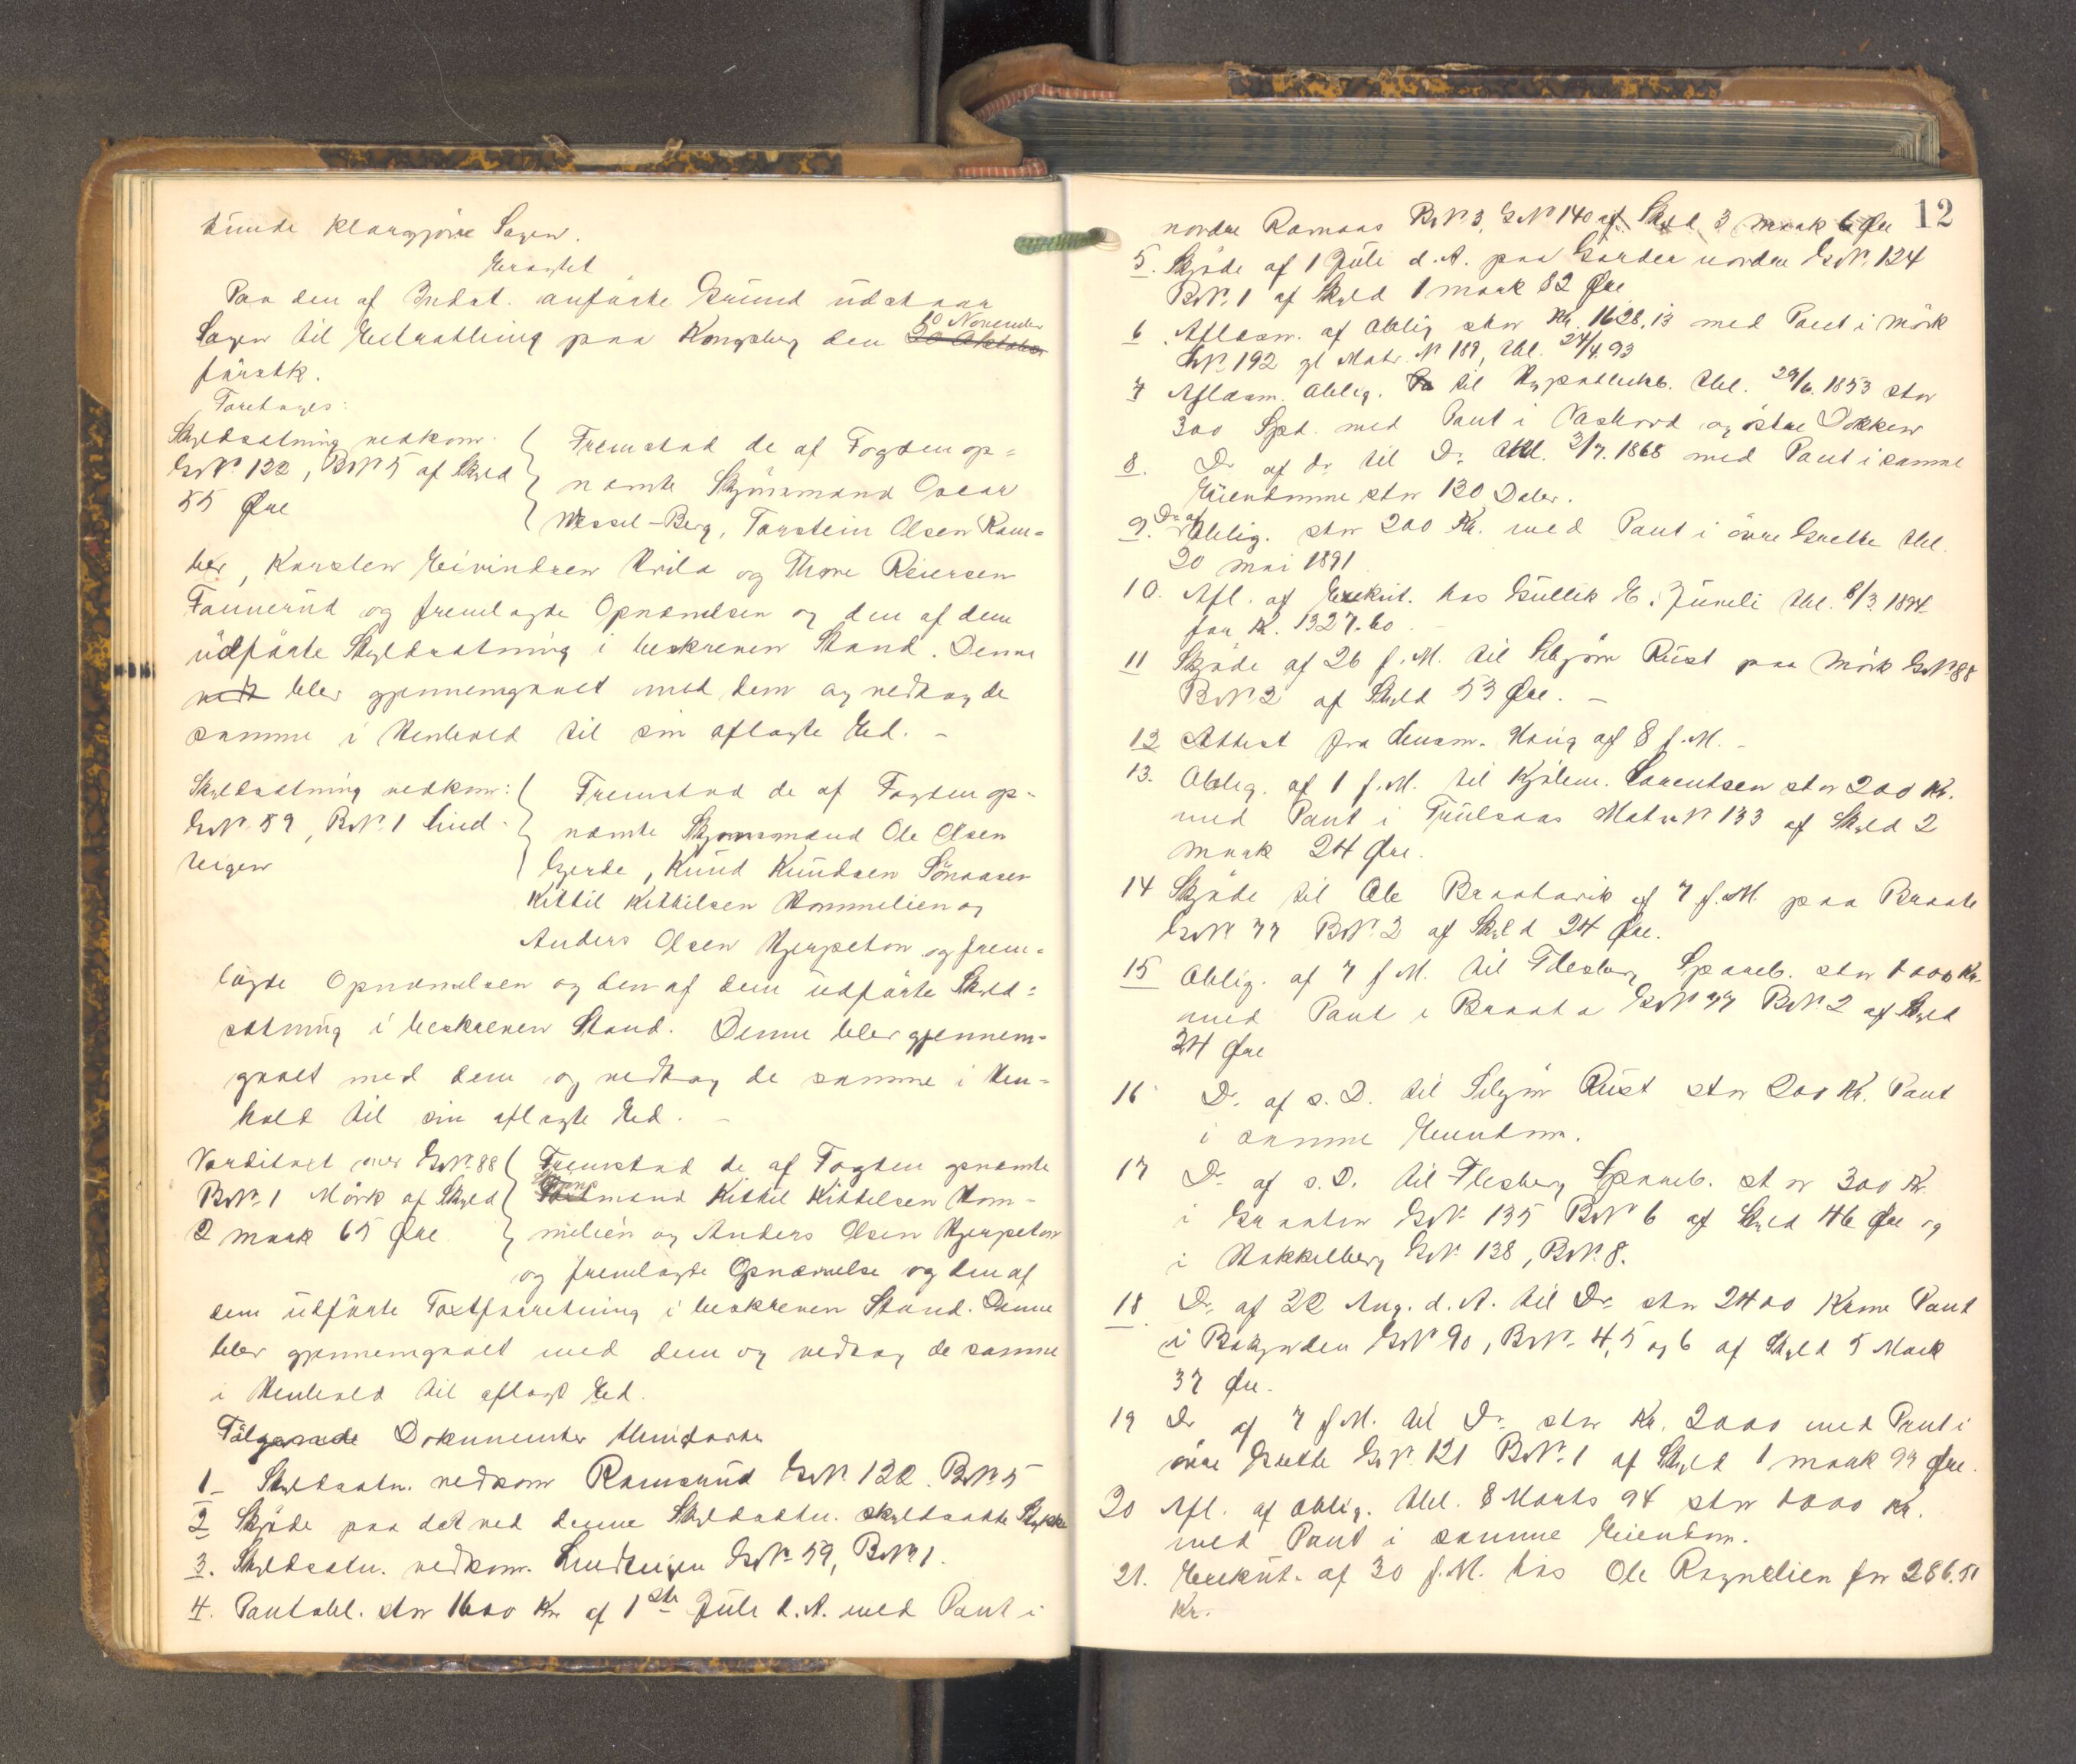 kunde klargjöre Sagen.
Eragtet
Paa den af Indst. anförte Grund udstaar
Sagen til Extrathing paa Kongsberg den 20 Oktober
10 November
förstk.
Foretages:
Skyldsætning vedkom.
GNº 122, BNº 5 af Skyld
55 Øre
Fremstod de af Fogden op=
nævnte Skjönsmænd Oscar
Wessel-Berg, Torstein Olsen Ram=
ber, Karsten Eivindsen Hvila og Thore Reiersen
Fannerud og fremlagde Opnævnelsen og den af dem
udförte Skyldsætning i beskreven Stand. Denne
blev gjennemgaaet med dem og vedtog de
samme i Henhold til sin aflagte Ed. -
Skyldsætning vedkom:
GNº 59, BNº 1 Lind-
teigen
Fremstod de af Fogden op-
nævnte Skjönsmænd Ole Olsen
Gjerde, Knud Knudsen Sönaasen
Kittil Kittilsen Hommelien og
Anders Olsen Hjerpeton og frem=
lagde Opnævnelsen og den af dem udförte Skyld=
sætning i beskreven Stand. Denne blev gjennem=
gaaet med dem og vedtog de samme i Hen=
hold til sin aflagte Ed. -
Værditaxt over GNº 88
BNº 1 Mörk af Skyld
2 mark 65 Øre
Fremstod de af Fogden opnævnte
Skjöns
mænd Kittil Kittelsen Hom-
melien og Anders Olsen Hjerpeton
og fremlagde Opnævnelse og den af
dem udförte Taxtforretning i beskreven Stand. Denne
blev gjennemgaaet med dem og vedtog de samme
i Henhold til aflagt Ed.
Fölgende Dokumenter thinglæstes
1 Skyldsætn. vedkom Ramsrud GNº 122. BNº 5
2 Skjöde paa det ved denne Skyldsætn. skyldsatte Stykke
3. Skyldsætn. vedkom. Lindteigen GNº 59, BNº 1.
4. Pantobl. stor 1600 Kr af 1ste Juli d.A. med Pant i
12
nordre Ramaas BNº 3, GNº 140 af Skyld 3 mark 6 Øre
5. Skjöde af 1 Juli d.A. paa Gaarden nordre GNº 124
BNº 1 af Skyld 1 mark 82 Øre
6 Aflæsn. af Oblig stor Kr. 1628,13 med Pant i Mörk
LNº 192 gl Matr. Nº 189, thl. 24/4.93
7 Aflæsn. Oblig. til Hypothekb. thl. 29/6.1853 stor
300 Spd. med Pant i Vashovd og östre Dokken
8. Do af do til Do thl. 3/7.1868 med Pant i samme
Eiendomme stor 130 Daler.
9. Do af Oblig. stor 200 Kr. med Pant i övre Grette thl.
20 mai 1891
10. Afl. af Exekut. hos Gullik E. Juveli thl. 8/3.1894
for K. 1327.60
11 Skjöde af 26 f.M. til Sebjörn Rust paa Mörk GNº 88
BNº 2 af Skyld 53 Øre. -
12 Attest fra Lensm. Haug af 8 f.M. -
13. Oblig. af 1 f.M. til Kjölem. Lorentsen stor 200 Kr.
med Pant i Truulsaas Matr Nº 133 af Skyld 2
mark 24 Øre.
14 Skjöde til Ole Braatarik af 7 f.M. paa Braate
GNº 77 BNº 2 af Skyld 24 Øre.
15 Oblig. af 7 f.M. til Flesberg Spareb. stor 1000 Kr.
med Pant i Braata GNº 77 BNº 2 af Skyld
24 Øre
16 Do af s.D. til Sebjörn Rust stor 200 Kr. Pant
i samme Eiendom.
17 Do af s.D. til Flesberg Spareb. stor 300 Kr.
i Graaten GNº 135 BNº 6 af Skyld 46 Øre og
i Stakkelberg GNº 138, BNº 8.
18. Do af 22 Aug. d.A. til Do stor 2400 Krone Pant
i Bakgarden GNº 90, BNº 4, 5 og 6 af Skyld 5 Mark
37 Øre.
19 Do af 7 f.M. til Do stor Kr. 2000 med Pant i
övre Grette GNº 121 BNº 1 af Skyld 1 mark 97 Øre.
20 Afl. af Oblig. thl. 8 Marts 94 stor 1000 Kr.
med Pant i samme Eiendom.
21. Exekut. af 30 f.M. hos Ole Ragnelien for 286.51
Kr.